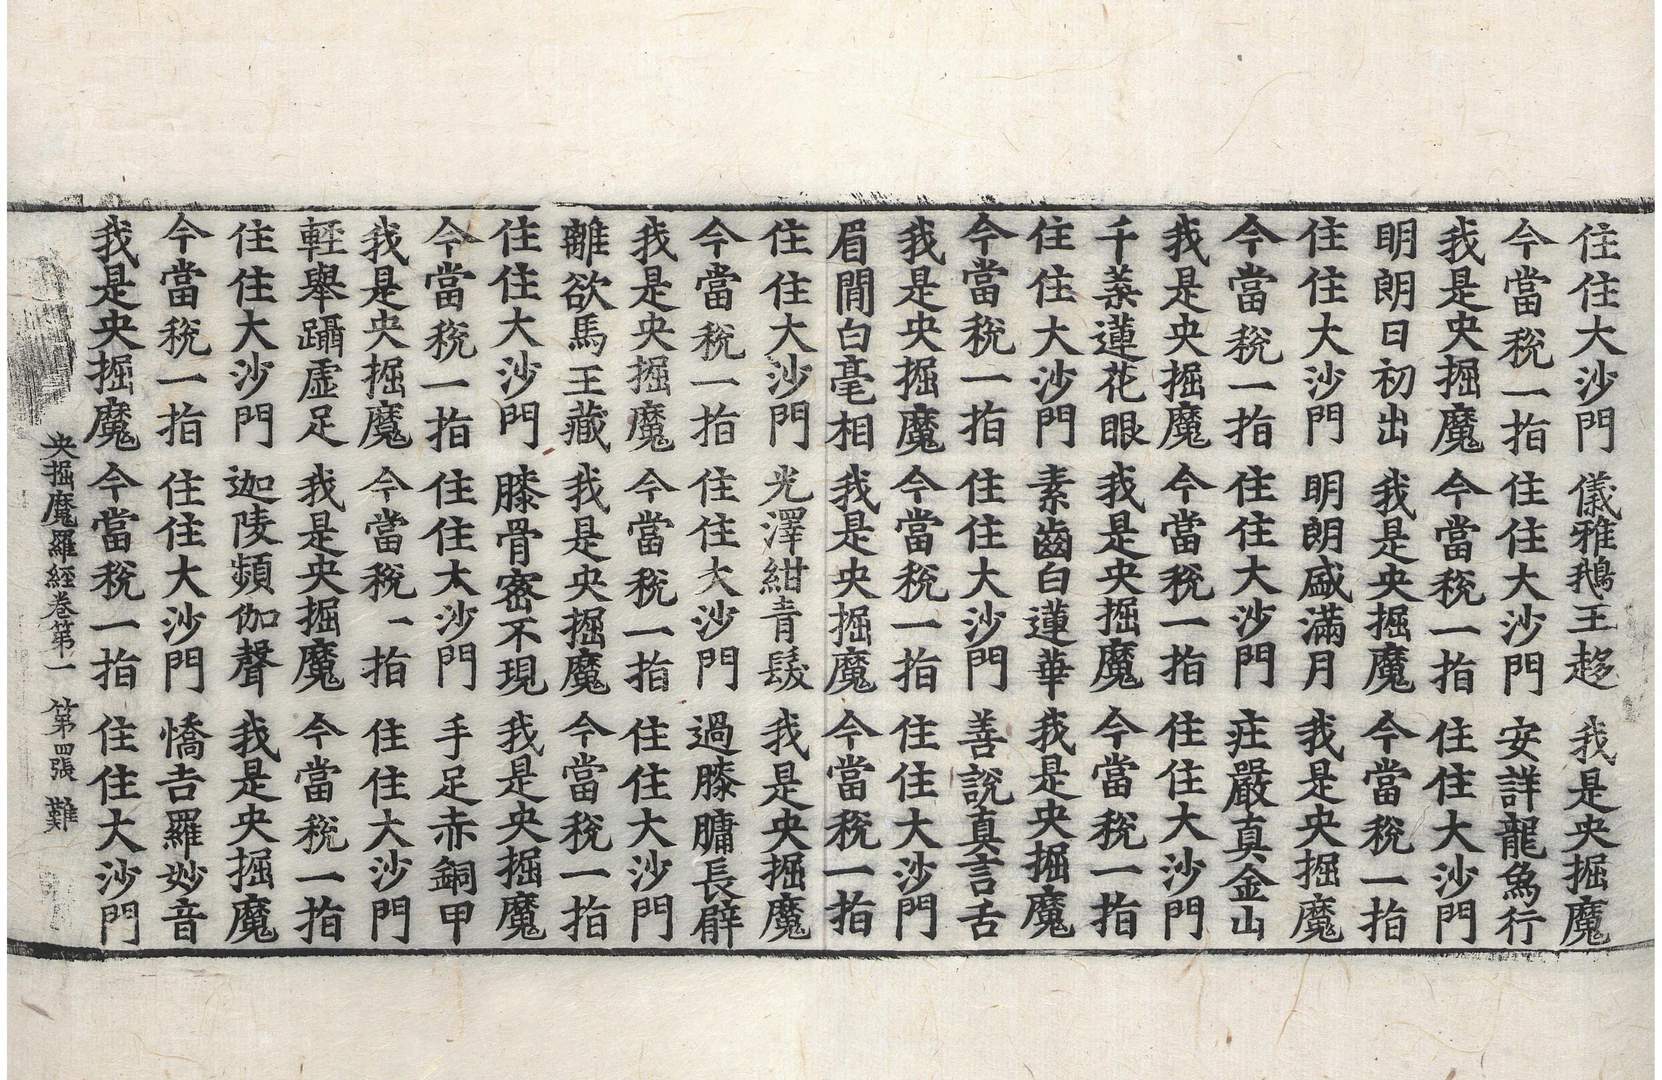 住住大沙門　儀雅鵝王趍　我是央掘魔
今當稅一指　住住大沙門　安詳龍象行
我是央掘魔　今當稅一指　住住大沙門
明朗日初出　我是央掘魔　今當稅一指
住住大沙門　明朗盛滿月　我是央掘魔
今當稅一指　住住大沙門　庄嚴真金山
我是央掘魔　今當稅一指　住住大沙門
千葉蓮花眼　我是央掘魔　今當稅一指
住住大沙門　素齒白蓮華　我是央掘魔
今當稅一指　住住大沙門　善說真言舌
我是央掘魔　今當稅一指　住住大沙門
眉間白毫相　我是央掘魔　今當稅一指
住住大沙門　光澤紺青髮　我是央掘魔
今當稅一指　住住大沙門　過膝膅長臂
我是央掘魔　今當稅一指　住住大沙門
離欲馬王藏　我是央掘魔　今當稅一指
住住大沙門　膝骨密不現　我是央掘魔
今當稅一指　住住大沙門　手足赤銅甲
我是央掘魔　今當稅一指　住住大沙門
輕舉躡虛足　我是央掘魔　今當稅一指
住住大沙門　迦陵頻伽聲　我是央掘魔
今當稅一指　住住大沙門　憍吉羅妙音
我是央掘魔　今當稅一指　住住大沙門
央掘魔羅經卷第一　第四張　難